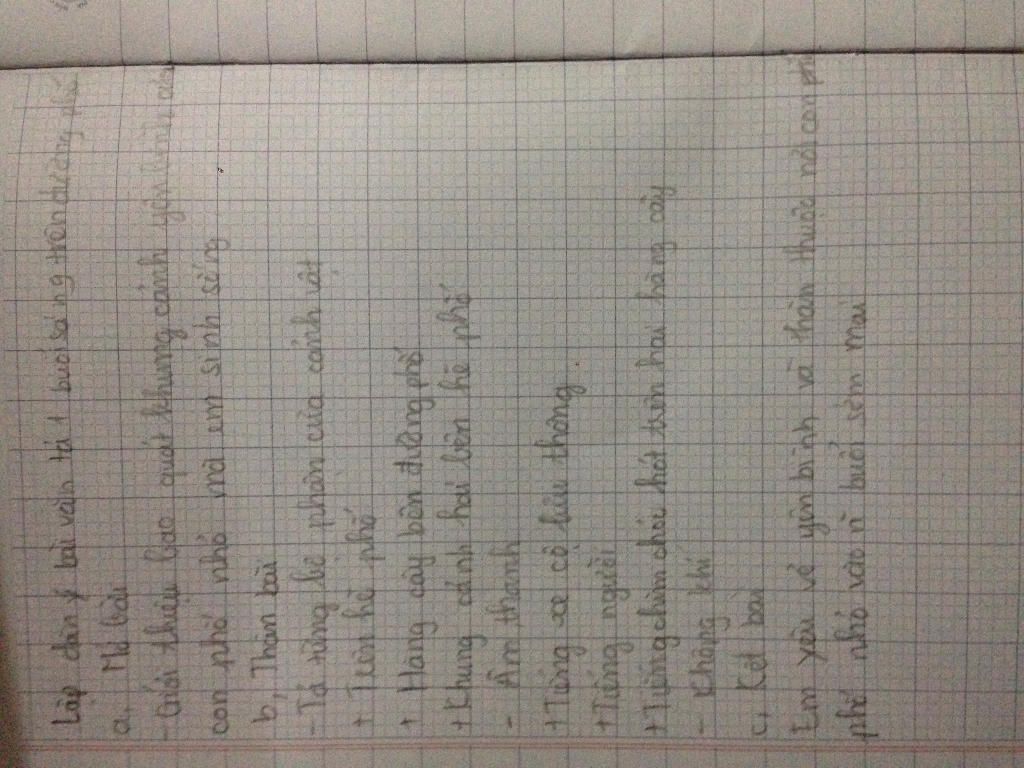 Lập dàn ý bài văn tả 1 buổi sáng trên đường phố
a, Mở bài
- Giới thiệu bao quát khung cảnh yên bình của
con phố nhỏ mà em sinh sống
b, Thân bài
- Tả từng bộ phận của cảnh vật
+ Trên hè phố
+ Hàng cây bên đường phố
+ Khung cảnh hai bên hè phố
- Âm thanh
+ Tiếng xe cộ lưu thông
+ Tiếng người
+ Tiếng chim chóc hót trên hai hàng cây
- Không khí
c, Kết bài
Em yêu vẻ yên bình và thân thuộc nơi con phố
phố nhỏ vào buổi sớm mai